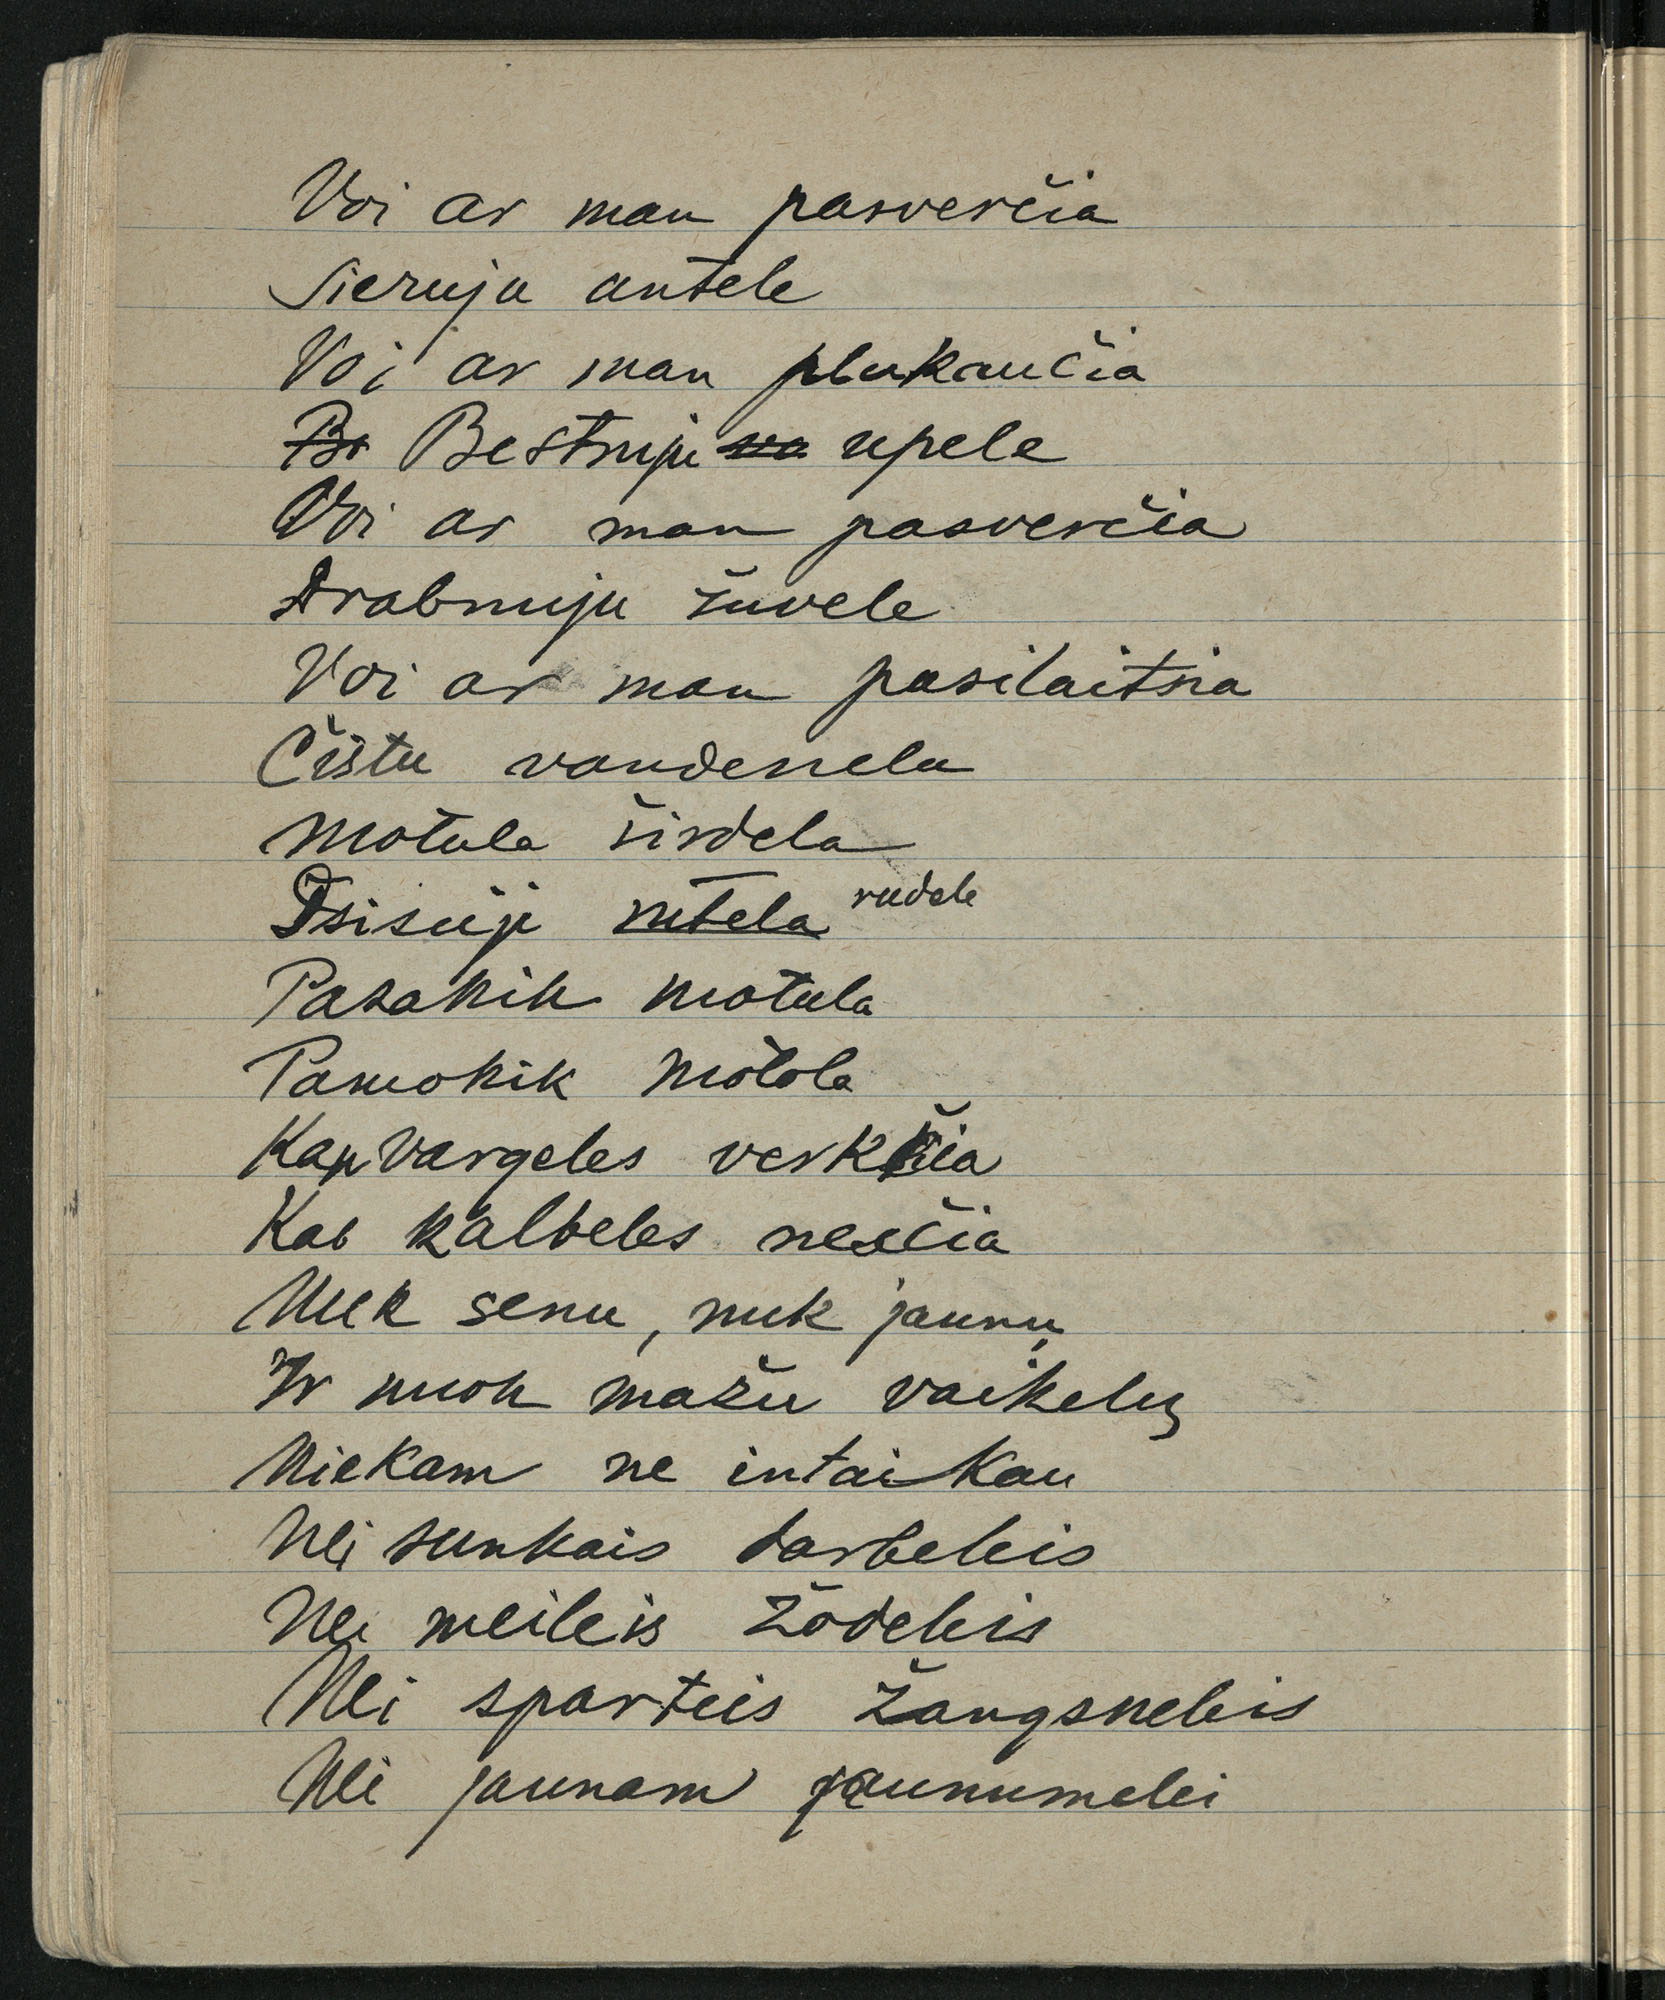 Voi ar man pasverčia
Sieruju antele
Voi ar man plukaučia
Br Bestruju upele
Voi ar man pasverčia
Drabnuju žuvele
Voi ar man pasilaitsia
Čistu vandenelu
Motula širdela
Tsisuji rutela rudele
Pasakik motula
Pamokik motola
Kap vargeles verkčia
Kab kalbeles nesčia
Nuk senu, nuk jaunu,
Ir nuok mažu vaikelu
Niekam ne intaikau
Nei sunkais darbeleis
Nei meileis žodeleis
Nei sparteis žangsneleis
Nei jaunam jaunumelei